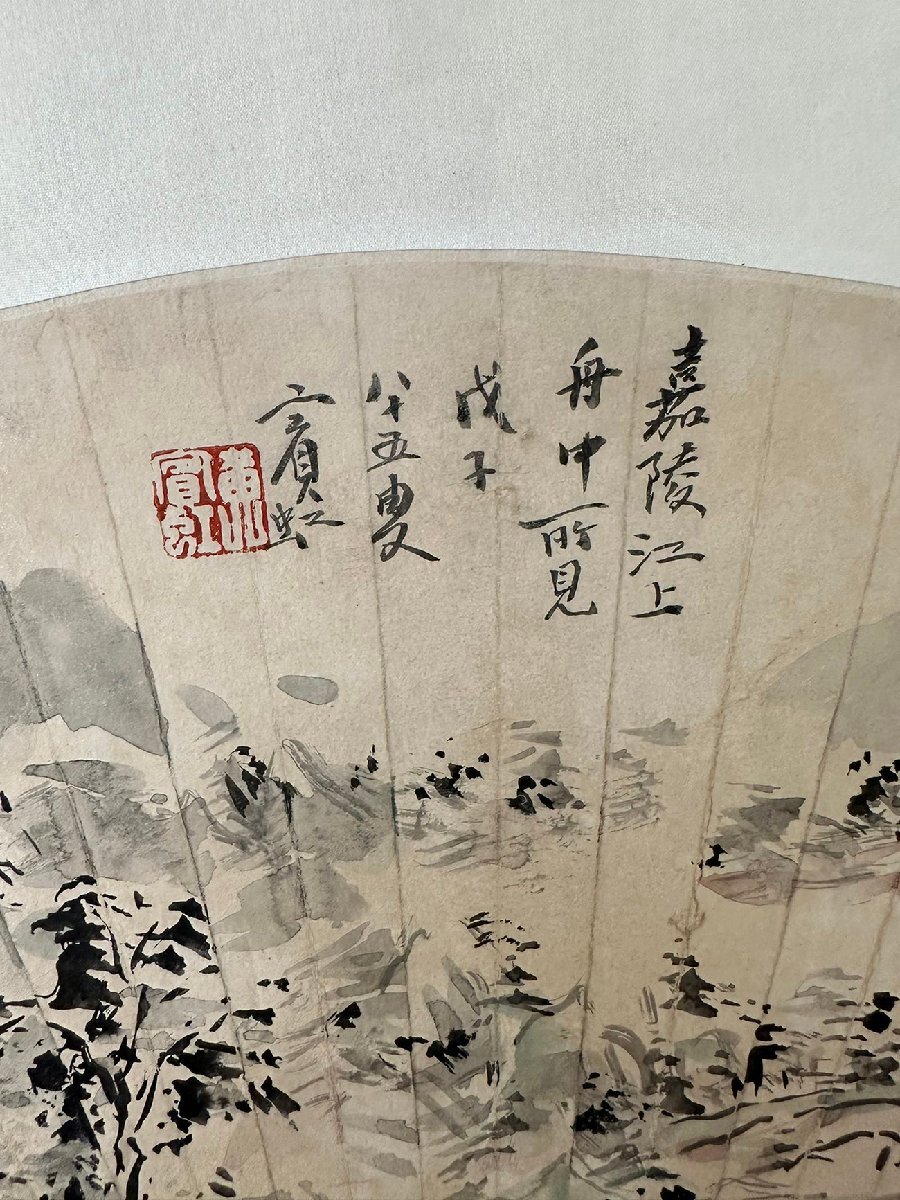 嘉陵江上
舟中所見
戊子
八十五叟
賓虹
黃山
賓虹